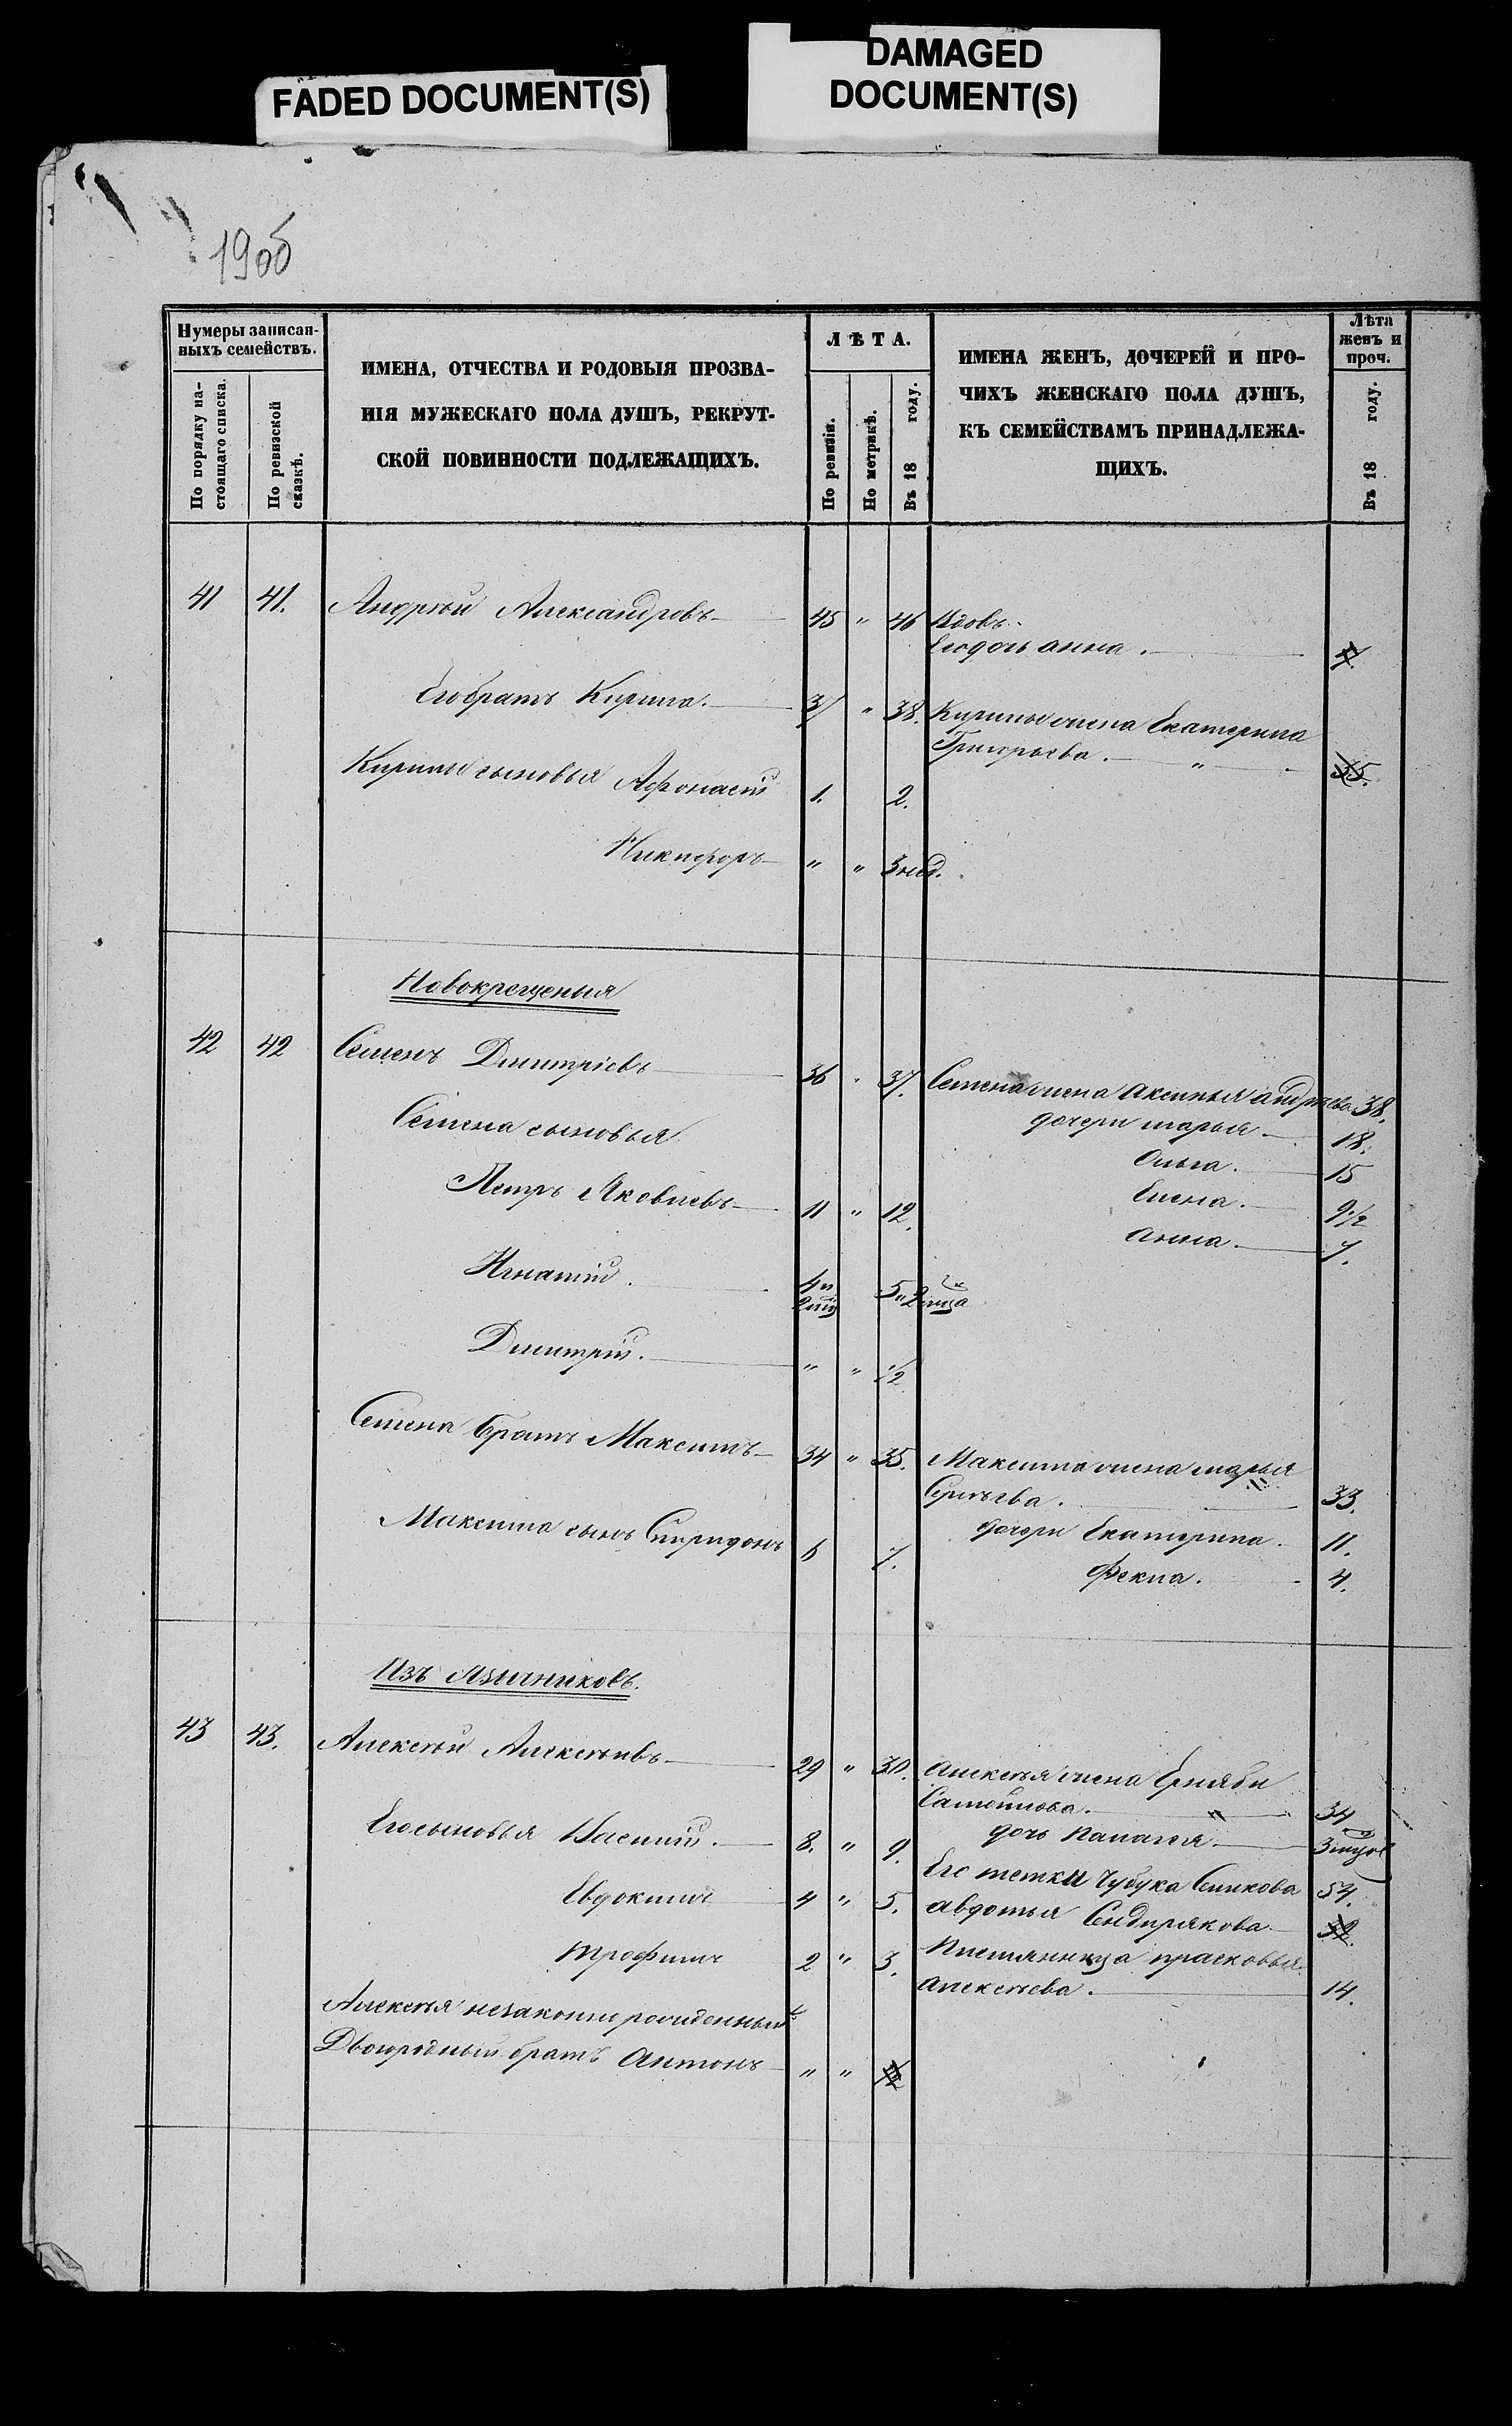 FADED DOCUMENT(S)
DAMAGED
DOCUMENT(S)
1906
Нумеры записан-
ныхъ семействъ.
По порядку на-
стоящаго списка.
По ревизской
сказкѣ.
ИМЕНА, ОТЧЕСТВА И РОДОВЫЯ ПРОЗВА-
НІЯ МУЖЕСКАГО ПОЛА ДУШЪ, РЕКРУТ-
СКОЙ ПОВИННОСТИ ПОДЛЕЖАЩИХЪ.
ЛѢТА.
По ревизіи.
По метрикѣ.
Въ 18 году.
ИМЕНА ЖЕНЪ, ДОЧЕРЕЙ И ПРО-
ЧИХЪ ЖЕНСКАГО ПОЛА ДУШЪ,
КЪ СЕМЕЙСТВАМЪ ПРИНАДЛЕЖА-
ЩИХЪ.
Лѣта
женъ и
проч.
Въ 18 году.
41 41. Андрей Александровъ 45 " 46 Вдовъ.
Его дочь анна.
Его братъ Кирила. 37 " 38. Кирилы жена Екатерина
Григорьева. " 35.
Кирилы сыновья Афонасій 1. 2.
Никифоръ " " 3 нед.
Новокрещеныя
42 42 Семенъ Дмитріевъ 36 " 37. Семена жена Аксинья андреева 38.
Семена сыновья дочери марья 18.
Ольга. 15
Петръ Яковлевъ 11 " 12. Елена. 9 1/2
анна. 7.
Игнатій. 5 " 2 мца
Дмитрій. " " 1/2
Семена братъ Максимъ 34 " 35. Максима жена марья
Сергѣева. 33.
Максима сынъ Спиридонъ 6 7. дочери Екатерина. 11.
Фекла. 4.
Изъ Язычниковъ.
43 43. Алексѣй Алексѣевъ 29 " 30. Алексѣя жена
Самойлова. " 34
Его сыновья Василій. 8. " 9. дочь Палагея
Евдокимъ 4 " 5. Его тетки Чубука Семкова 54.
авдотья Сндирякова
Трофимъ 2 " 3. Племянница прасковья
Алексѣева. 14.
Алексѣя незаконно рожденный
Двоюродный братъ Антонъ " "